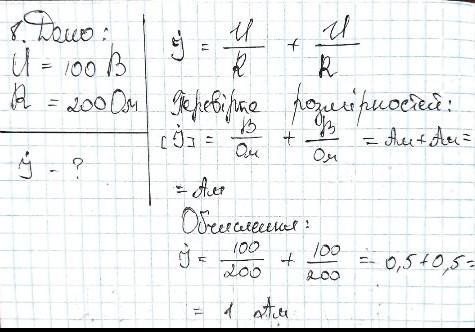 8. Дано:
U = 100 В
R = 200 Ом
J - ?
J = U/R + U/R
Перевірка розмірностей:
[J] = В/Ом + В/Ом = Ам + Ам =
= Ам
Обчислення:
J = 100/200 + 100/200 = 0,5 + 0,5 =
= 1 Ам